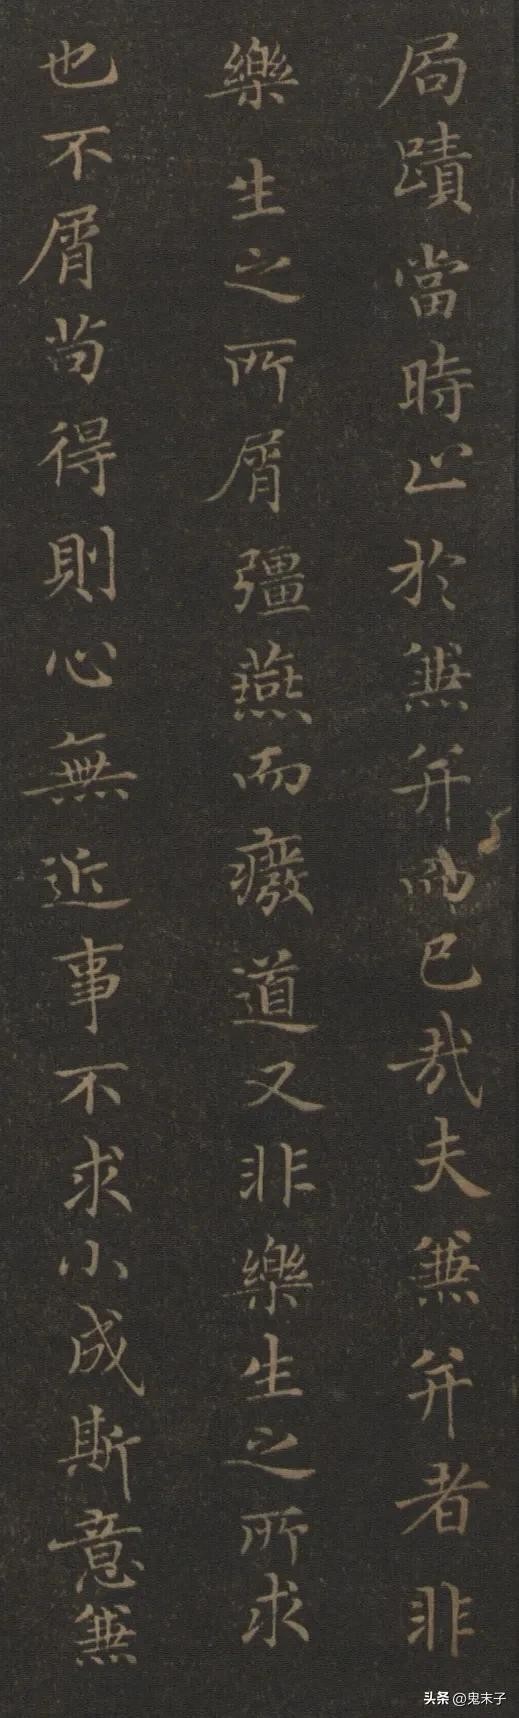 局蹟當時止於兼并而已哉夫兼并者非
樂生之所屑彊燕而癈道又非樂生之所求
也不屑苟得則心無近事不求小成斯意兼
头条 @鬼末子